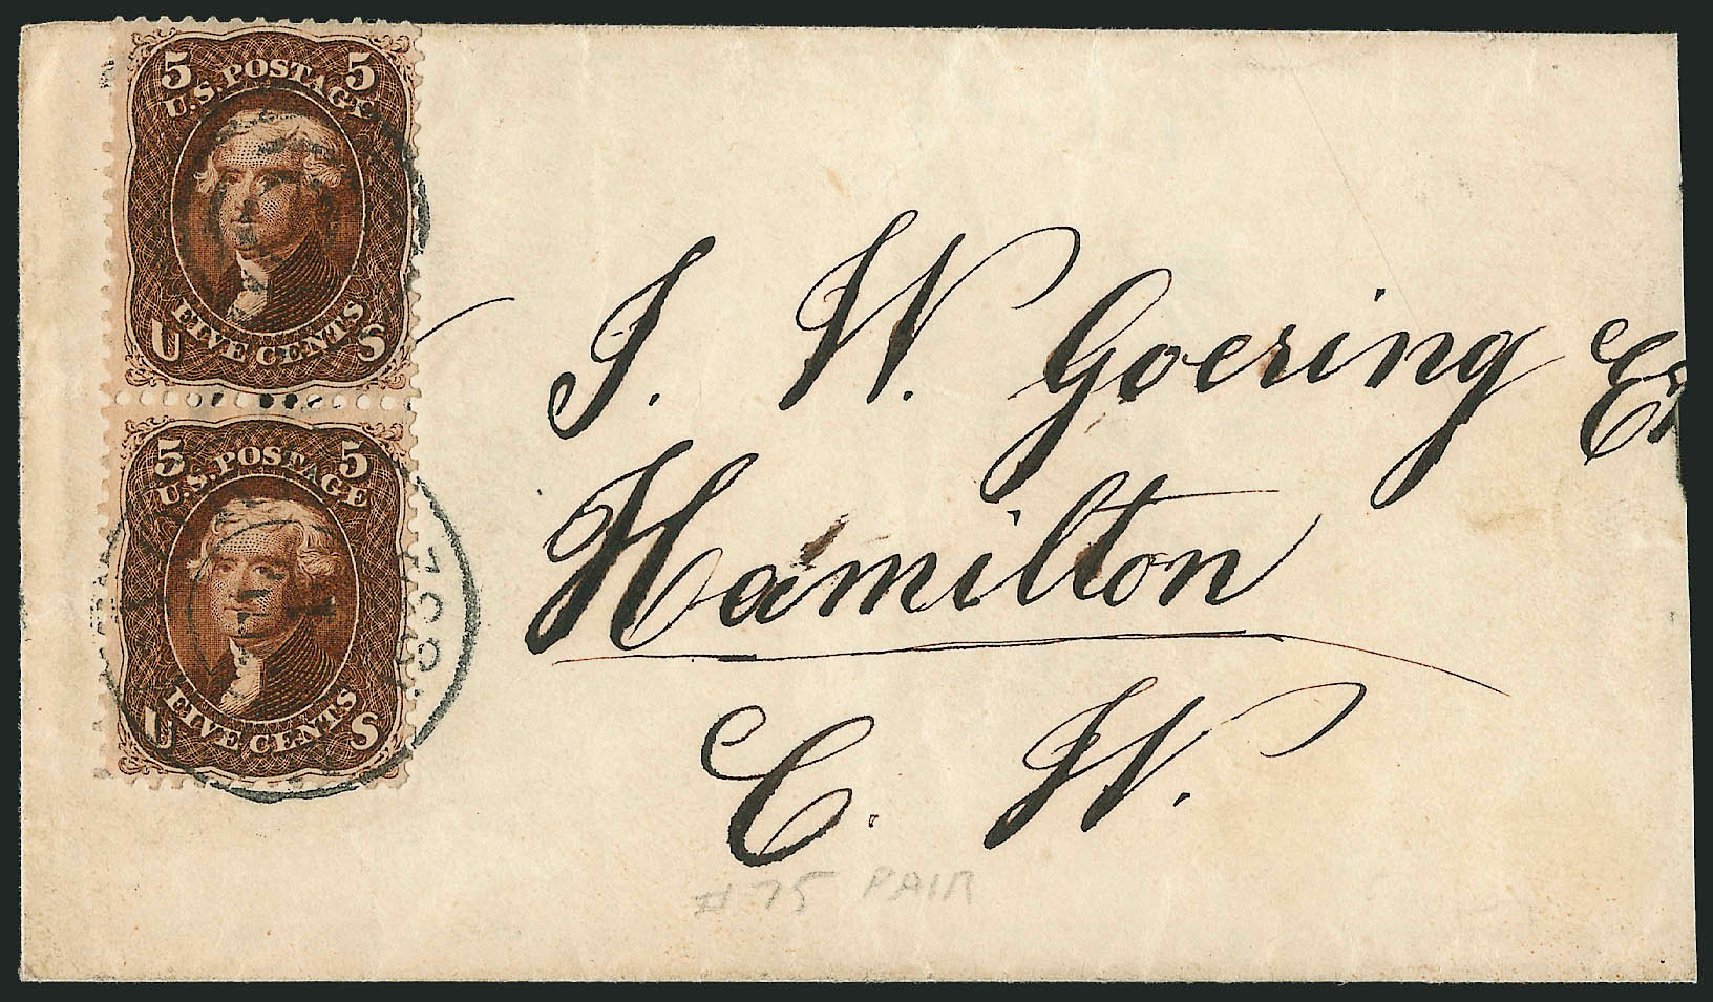 5 5
U.S. POSTAGE
FIVE CENTS
U S
5 5
U.S. POSTAGE
FIVE CENTS
U S
J. W. Goering
Hamilton
C. W.
#75 PAIR